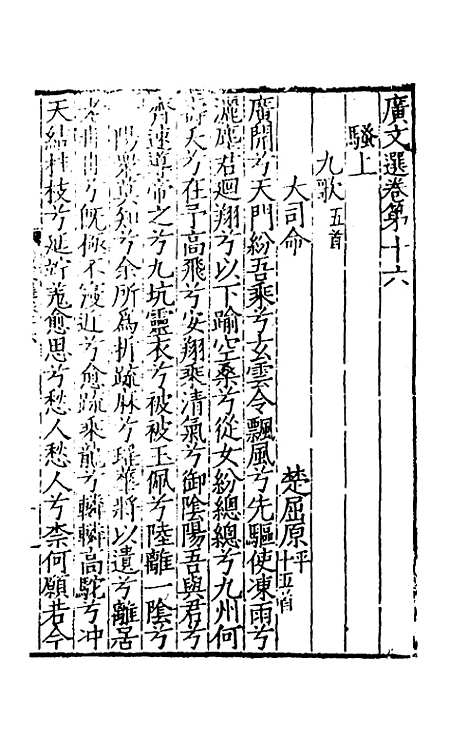 廣文選卷第十六
騷上
九歌五首
大司命　楚屈原平十五首
廣開兮天門紛吾乘兮玄雲令飄風兮先驅使凍雨兮
灑塵君迴翔兮以下踰空桑兮從女紛總總兮九州何
壽夭兮在予高飛兮安翔乘清氣兮御陰陽吾與君兮
齊速導帝之兮九坑靈衣兮被被玉佩兮陸離一陰兮
一陽眾莫知兮余所為折疏麻兮瑤華將以遺兮離居
老冉冉兮既極不寖近兮愈疏乘龍兮轔轔高駝兮冲
天結桂枝兮延竚羗愈思兮愁人愁人兮柰何願若今